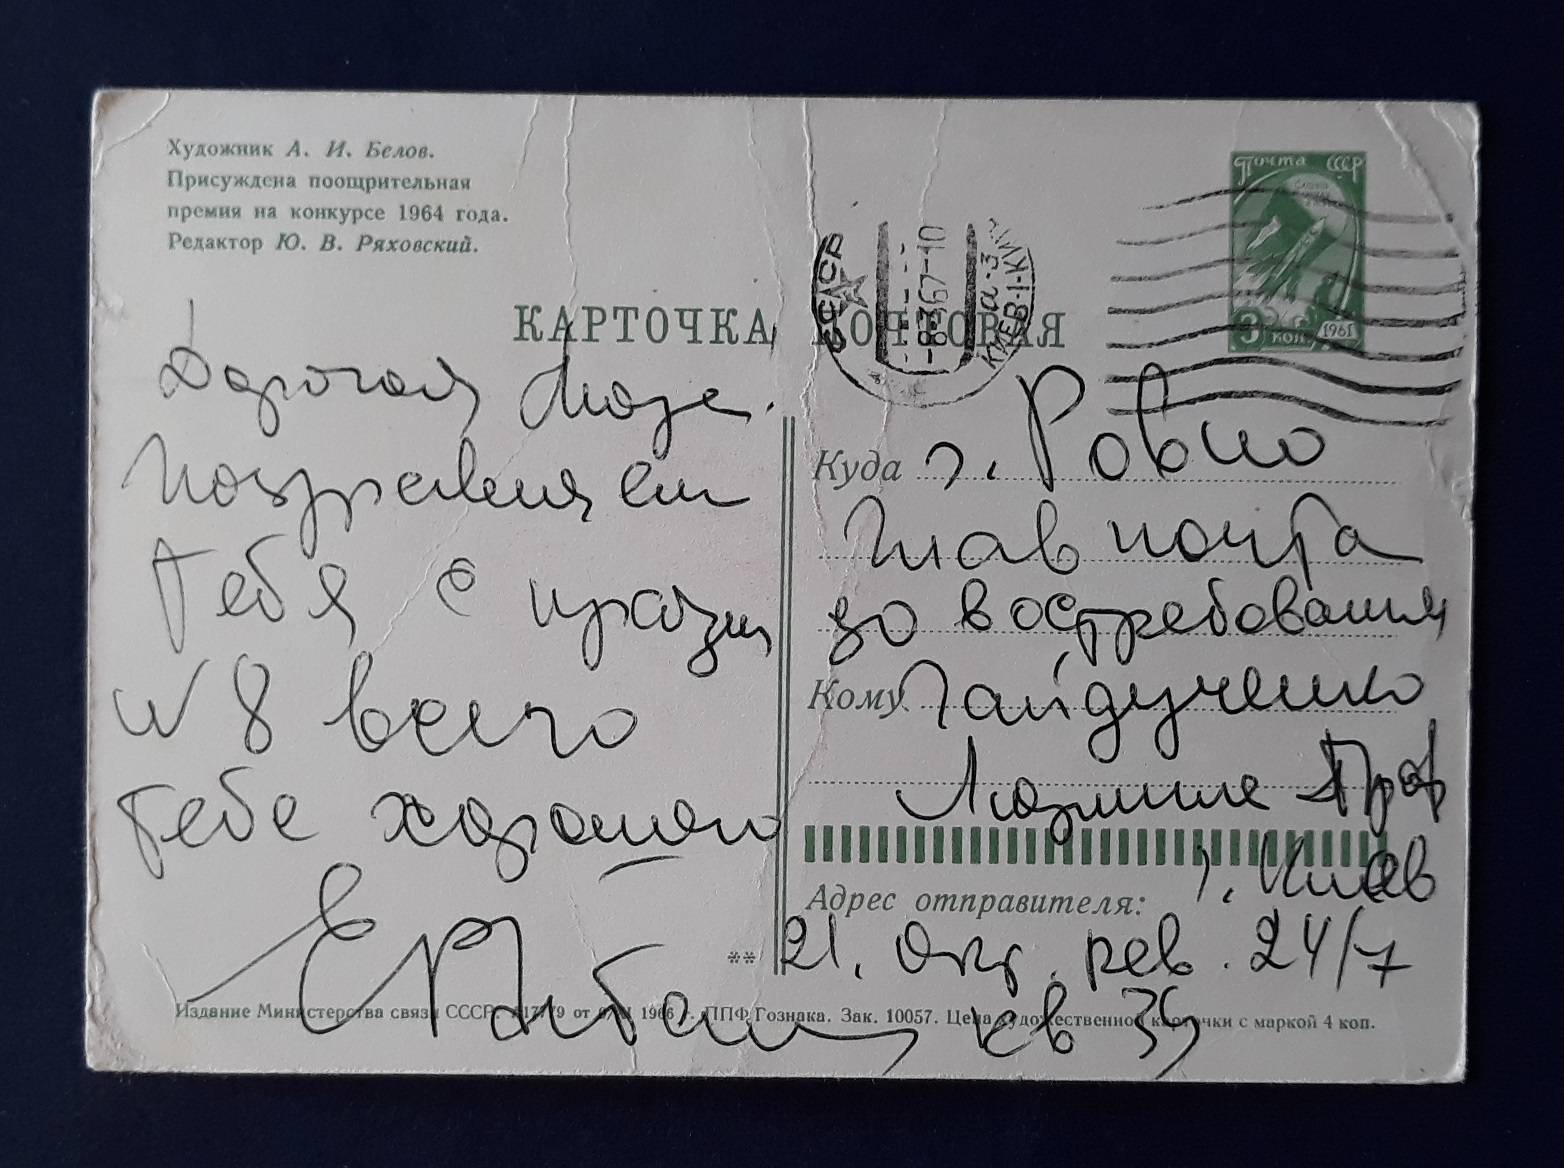 Художник А. И. Белов.
Присуждена поощрительная
премия на конкурсе 1964 года.
Редактор Ю. В. Ряховский.
Почта СССР
3 коп 1961
СССР
-8-3 67-10
КИЕВ-1-КИ
КАРТОЧКА ПОЧТОВАЯ
Дорогая Людa.
Поздравляем
Тебя с праздн
и 8 всего
Тебе хорошего
Куда г. Ровно
Главпочта
до востребования
Кому Гайдученко
Людмиле
г. Киев
Адрес отправителя:
21. Окт. рев. 24/7
кв 35
**
Издание Министерства связи СССР. от 1966 г. ППФ Гознака. Зак. 10057. Цена художественной карточки с маркой 4 коп.